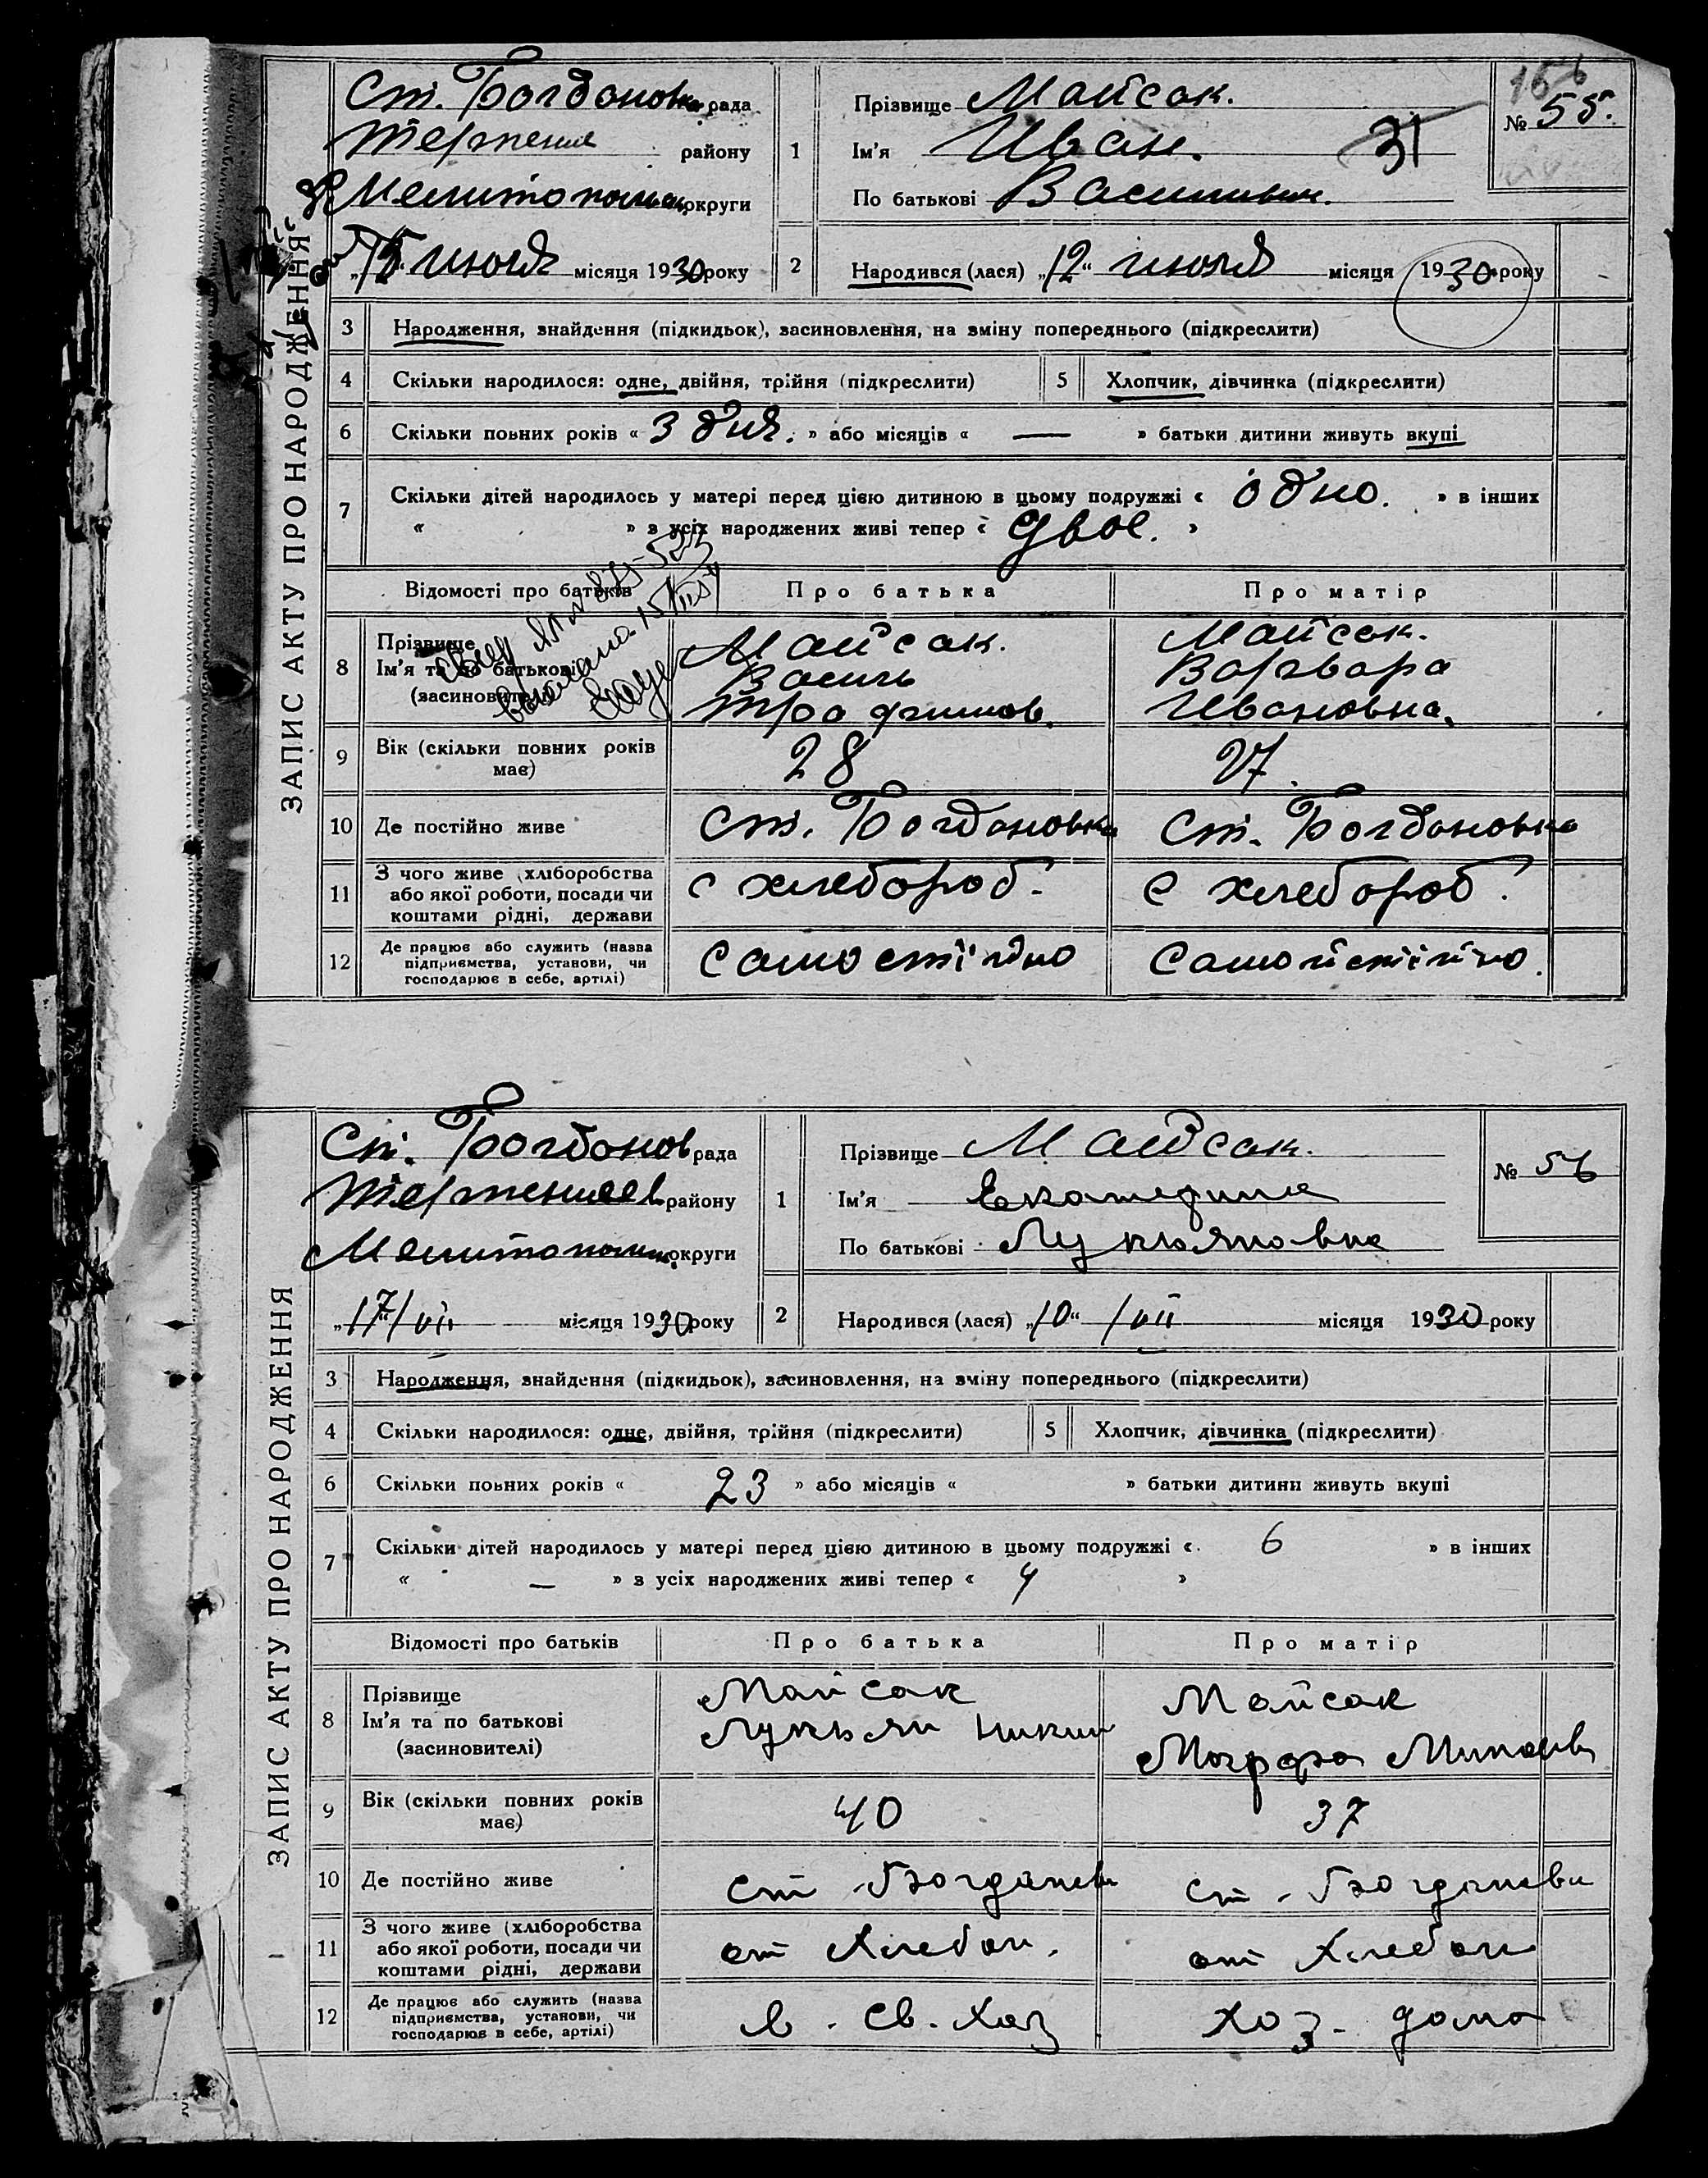 ЗАПИС АКТУ ПРО НАРОДЖЕННЯ
Ст. Богдановка рада
Терпение району
Мелитопольс округи
„15“ июля місяця 1930 року
1
Прізвище Майсак.
Ім'я Иван. 31
По батькові Васильевич.
156
№ 55.
2
Народився (лася) „12“ июля місяця 1930 року
3 Народження, знайдення (підкидьок), засиновлення, на зміну попереднього (підкреслити)
4 Скільки народилося: одне, двійня, трійня (підкреслити) 5 Хлопчик, дівчинка (підкреслити)
6 Скільки повних років « 3 дня. » або місяців « — » батьки дитини живуть вкупі
7 Скільки дітей народилось у матері перед цією дитиною в цьому подружжі « одно. » в інших
« » з усіх народжених живі тепер « двое. »
Відомості про батьків Про батька Про матір
8 Прізвище
Ім'я та по батькові
(засновителі)
Майсак.
Василь
Трофимов.
Майсак.
Варвара
Ивановна.
9 Вік (скільки повних років має) 28 27.
10 Де постійно живе ст. Богдановка ст. Богдановка
11 З чого живе (хліборобства
або якої роботи, посади чи
коштами рідні, держави
с хлебороб. с хлебороб.
12 Де працює або служить (назва
підприємства, установи, чи
господарює в себе, артілі)
самостійно самойстійно.
ЗАПИС АКТУ ПРО НАРОДЖЕННЯ
Ст. Богданов рада
Терпениев району
Мелитополь. округи
„17“/VII місяця 1930 року
1
Прізвище Майсак.
Ім'я Екатерина
По батькові Лукьяновна
№ 56
2
Народився (лася) „10“ /VII місяця 1930 року
3 Народження, знайдення (підкидьок), засиновлення, на зміну попереднього (підкреслити)
4 Скільки народилося: одне, двійня, трійня (підкреслити) 5 Хлопчик, дівчинка (підкреслити)
6 Скільки повних років « 23 » або місяців « » батьки дитини живуть вкупі
7 Скільки дітей народилось у матері перед цією дитиною в цьому подружжі « 6 » в інших
« — » з усіх народжених живі тепер « 4 »
Відомості про батьків Про батька Про матір
8 Прізвище
Ім'я та по батькові
(засиновителі)
Майсак
Лукьян Никит
Майсак
Марфа
9 Вік (скільки повних років має) 40 37
10 Де постійно живе ст. Богданов ст. Богдановк
11 З чого живе (хліборобства
або якої роботи, посади чи
коштами рідні, держави
от хлебоп. от хлебоп
12 Де працює або служить (назва
підприємства, установи, чи
господарює в себе, артілі)
в. св. хоз хоз. дома